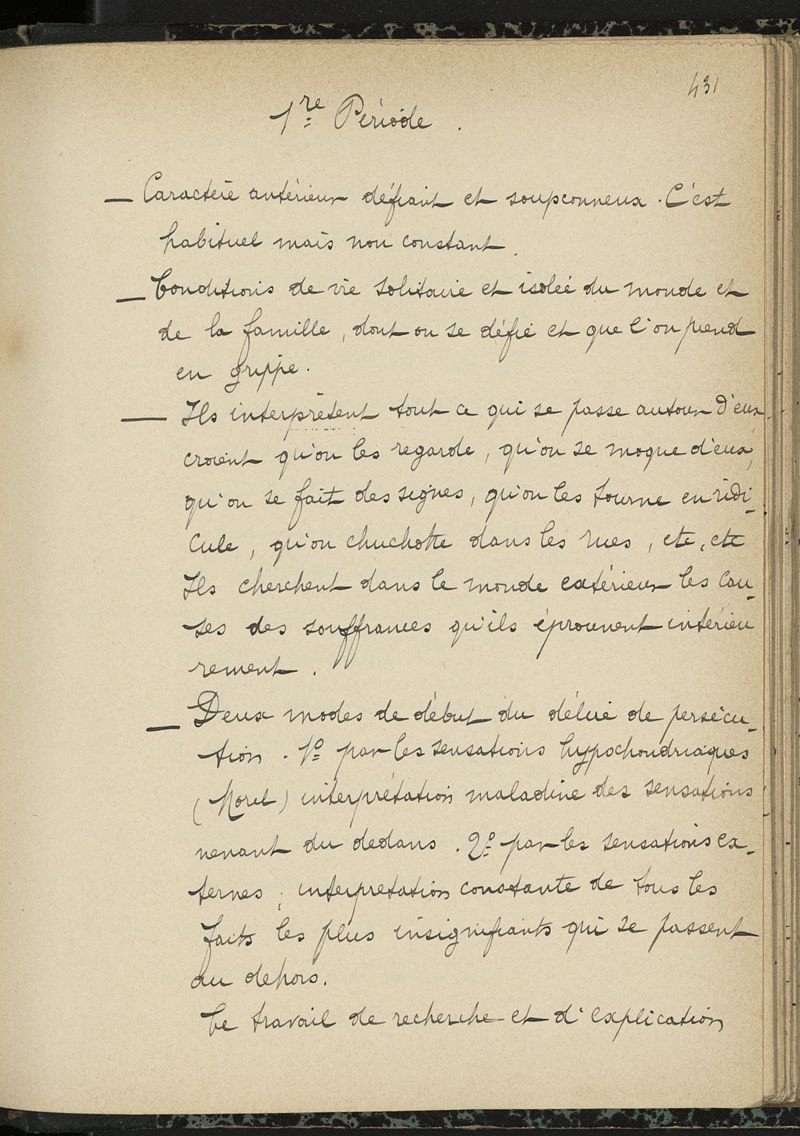 431
1re Période.
— Caractère antérieur défiant et soupçonneux. C'est
habituel mais non constant.
— Conditions de vie solitaire et isolée du monde et
de la famille, dont on se défie et que l'on prend
en grippe.
— Ils interprètent tout ce qui se passe autour d'eux
croient qu'on les regarde, qu'on se moque d'eux,
qu'on se fait des signes, qu'on les tourne en ridi-
cule, qu'on chuchotte dans les rues, etc, etc
Ils cherchent dans le monde extérieur les cau-
ses des souffrances qu'ils éprouvent intérieu
rement.
— Deux modes de début du délire de persécu-
tion. 1º par les sensations hypochondriaques
(Morel) interprétation maladive des sensations
venant du dedans. 2º par les sensations ex-
ternes; interpretation constante de tous les
faits les plus insignifiants qui se passent
au dehors.
Ce travail de recherche et d'explication